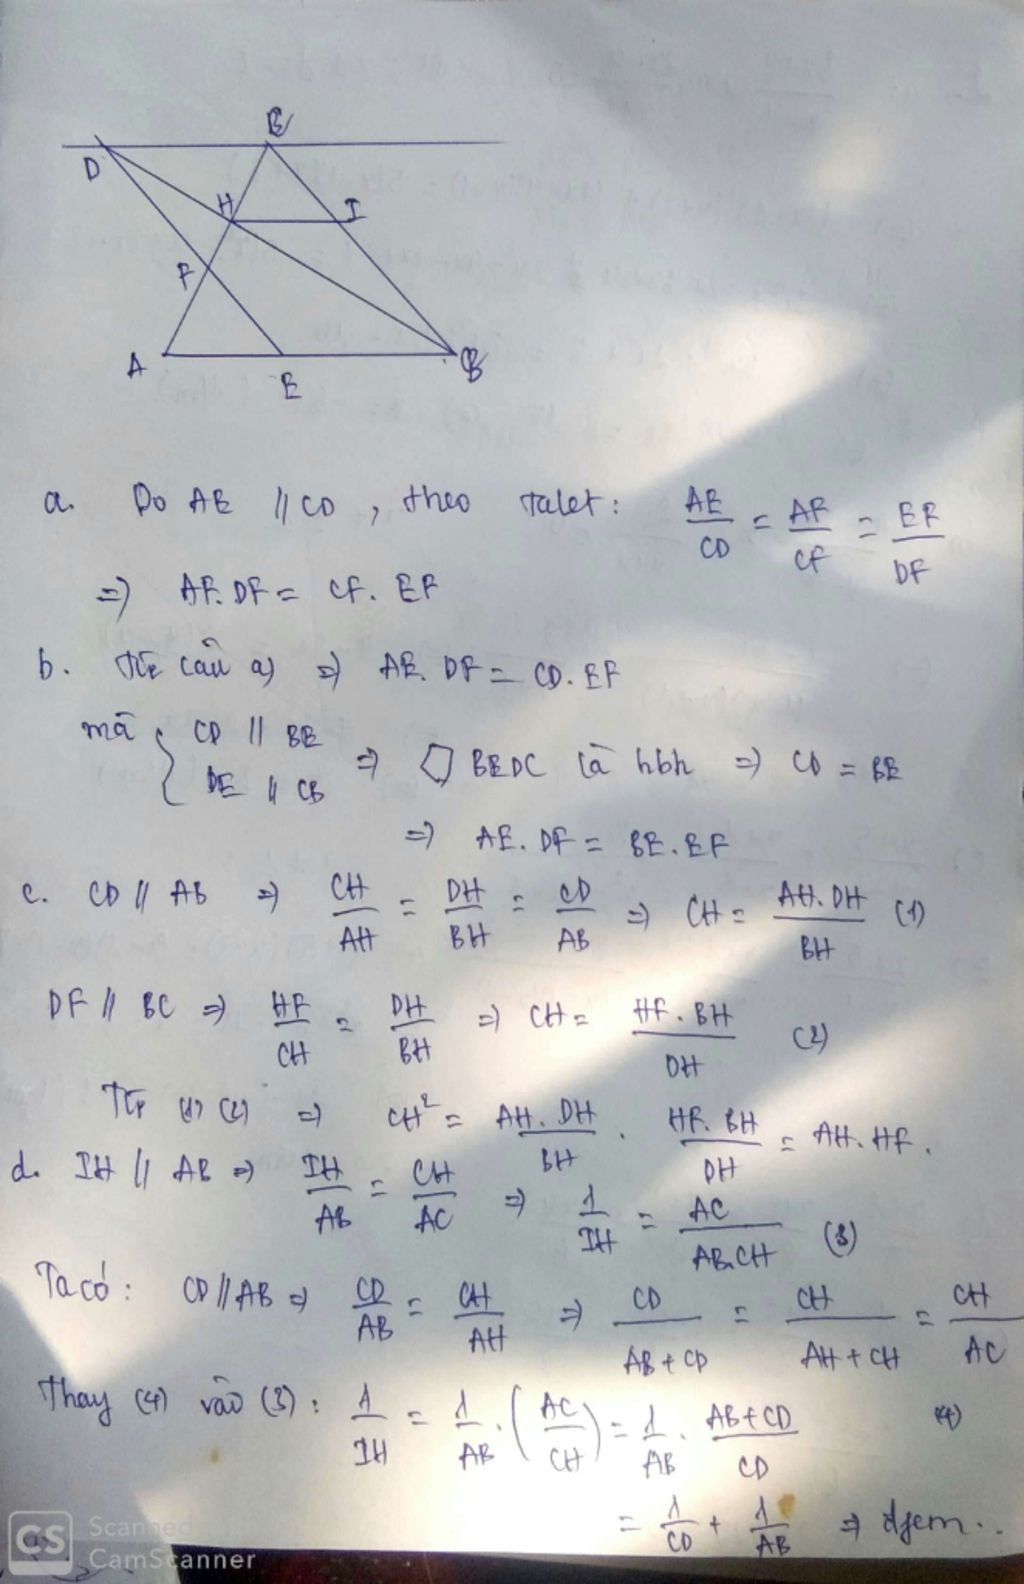 C
D
H
I
F
A
B
E
a. Do AE // CD , theo Talet : AE/CD = AF/CF = EF/DF
=) AF. DF = CF. EF
b. Từ câu a) => AE. DF = CD. EF
mà { CD // BE
DE // CB => BEDC là hbh => CD = BE
=> AE. DF = BE. EF
c. CD // AB => CH/AH = DH/BH = CD/AB => CH = AH. DH/BH (1)
DF // BC => HF/CH = DH/BH => CH = HF. BH/DH (2)
Từ (1) (2) => CH² = AH. DH/BH . HF. BH/DH = AH. HF.
d. IH // AB => IH/AB = CH/AC => 1/IH = AC/AB.CH (3)
Ta có : CD // AB => CD/AB = CH/AH => CD/AB + CD = CH/AH + CH = CH/AC
(4)
Thay (4) vào (3) : 1/IH = 1/AB . (AC/CH) = 1/AB . AB + CD/CD
= 1/CD + 1/AB => đpcm..
CS Scanned
CamScanner